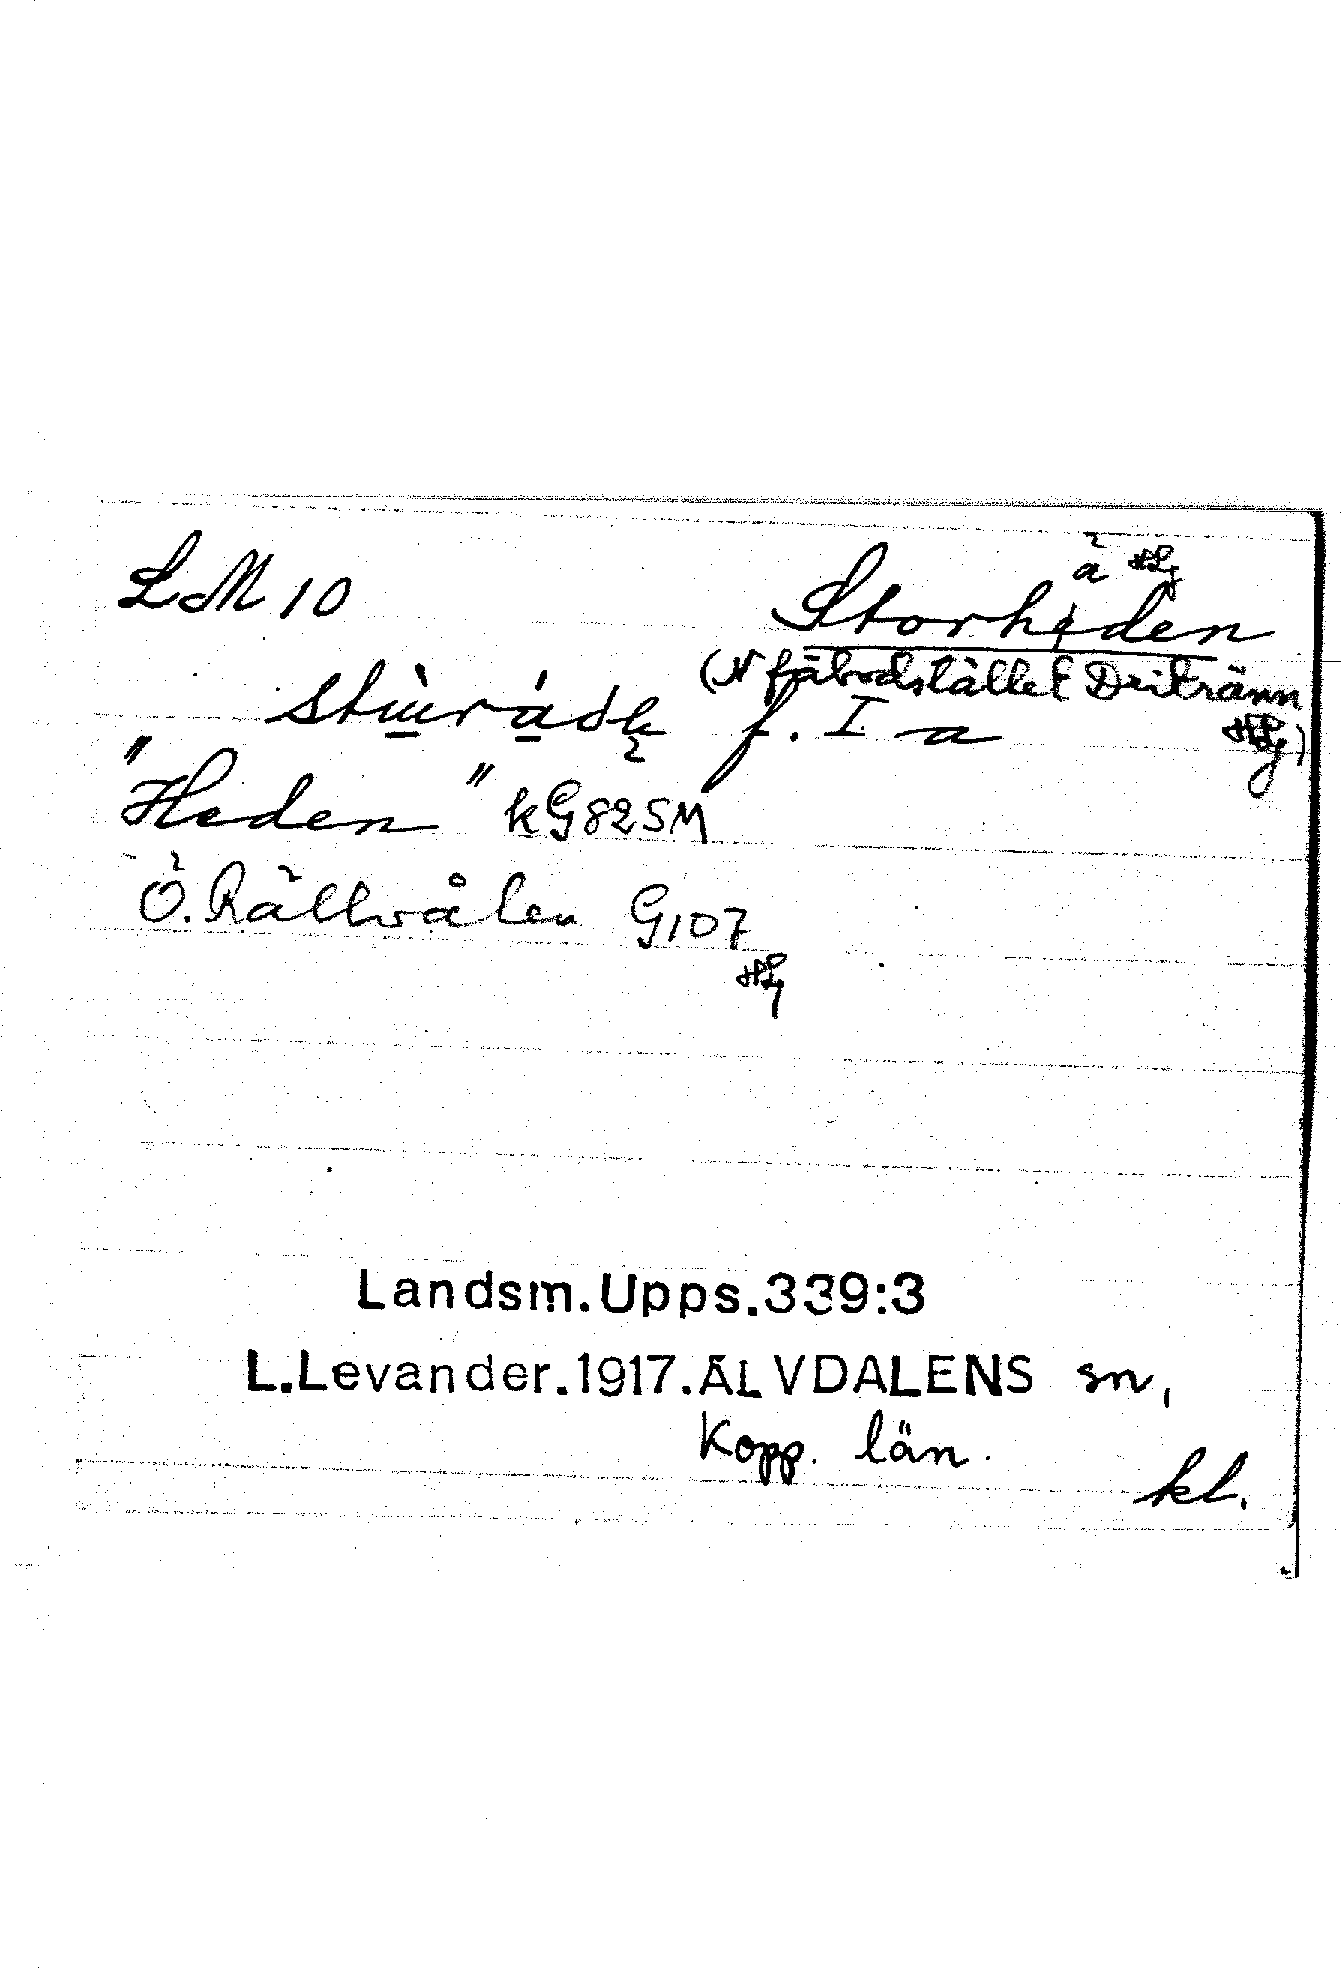 LM 10
ä HLj
Storheden
(N fäbodstället Dritränn HLj)
f. I a
"Heden" kG82SM
Ö. Rällvålen G107
HLj
Landsm.Upps.339:3
L.Levander.1917.ÄLVDALENS sn,
Kopp. län.
kl.